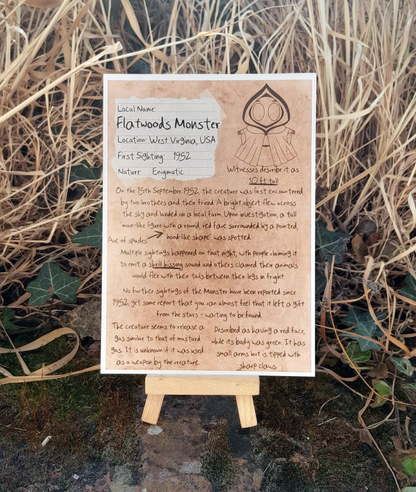 Local Name
Flatwoods Monster
Location: West Virginia, USA
First Sighting: 1952
Nature: Enigmatic
Witnesses describe it as
10ft tall
On the 15th September 1952, the creature was first encountered
by two brothers and their friend. A bright object flew across
the sky and landed on a local farm. Upon investigation, a tall
man-like figure with a round, red face surrounded by a pointed,
hood-like shape was spotted.
Ace of spades
Multiple sightings happened on that night, with people claiming it
to emit a shrill hissing sound and others claimed their animals
would flee with their tails between their legs in fright.
No further sightings of the Monster have been reported since
1952, yet some report that you can almost feel that it left a gift
from the stars - waiting to be found.
The creature seems to release a
gas similar to that of mustard
gas. It is unknown if it was used
as a weapon by the creature.
Described as having a red face,
while its body was green. It has
small arms but is tipped with
sharp claws.